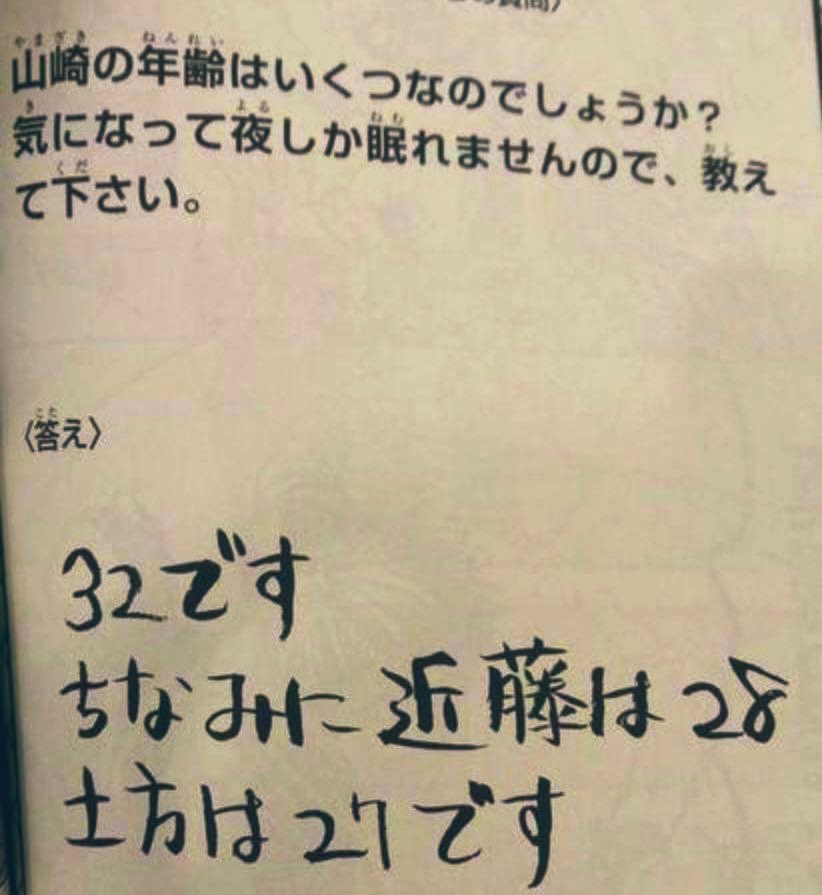 山崎の年齢はいくつなのでしょうか?
気になって夜しか眠れませんので、教え
て下さい。
〈答え〉
32です
ちなみに近藤は28
土方は27です